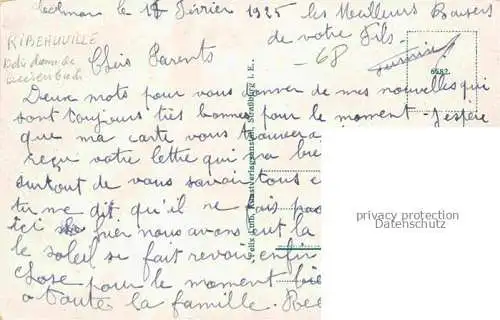 Colmar le 18 Février 1925 les Meilleurs Baisers
de votre Fils
RIBEAUVILLE
Notre dame de
- 68
Chers Parents
6682.
Deux mots pour vous donner de mes nouvelles qui
sont toujours très bonnes pour le moment - J'espère
que ma carte vous trouvera
reçu votre lettre qui m'a
surtout de vous savoir tous
tu me dit qu'il ne fais pas
ici hier nous avons eut la
le soleil se fait revoir enfin
chose pour le moment
a toute la famille.
Felix Luib, Kunstverlagsanstalt, Straßburg i. E.
privacy protection
Datenschutz